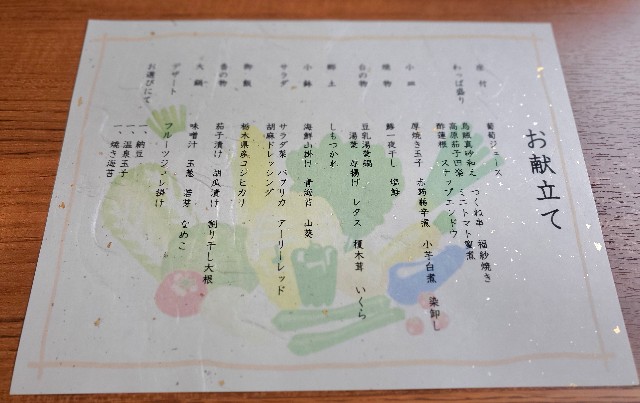 お献立て
座付　葡萄ジュース
わっぱ盛り　鳥賊真砂和え　つくね串　福紗焼き
高原茄子田楽　ミニトマト蜜煮
酢蓮根　スナップエンドウ
小皿　厚焼き玉子　赤蒟蒻辛煮　小芋白煮　染卸し
焼物　鯵一夜干し　塩鮭
台の物　豆乳湯葉鍋
湯葉　厚揚げ　レタス　榎木茸　いくら
郷土　しもつかれ
小鉢　海鮮山掛け　青海苔　山葵
サラダ　サラダ菜　パプリカ　アーリーレッド
胡麻ドレッシング
御飯　栃木県産コシヒカリ
香の物　茄子漬け　胡瓜漬け　割り干し大根
大鍋　味噌汁　玉葱　若芽　なめこ
デザート　フルーツジュレ掛け
お選びにて　一、納豆
一、温泉玉子
一、焼き海苔